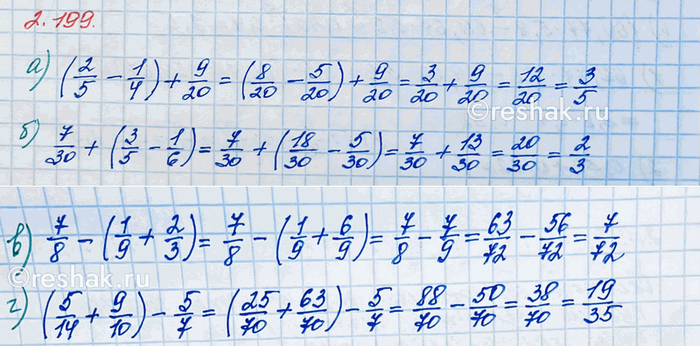 2.199.
а) (2/5 − 1/4) + 9/20 = (8/20 − 5/20) + 9/20 = 3/20 + 9/20 = 12/20 = 3/5
б) 7/30 + (3/5 − 1/6) = 7/30 + (18/30 − 5/30) = 7/30 + 13/30 = 20/30 = 2/3
в) 7/8 − (1/9 + 2/3) = 7/8 − (1/9 + 6/9) = 7/8 − 7/9 = 63/72 − 56/72 = 7/72
©reshak.ru
г) (5/14 + 9/10) − 5/7 = (25/70 + 63/70) − 5/7 = 88/70 − 50/70 = 38/70 = 19/35